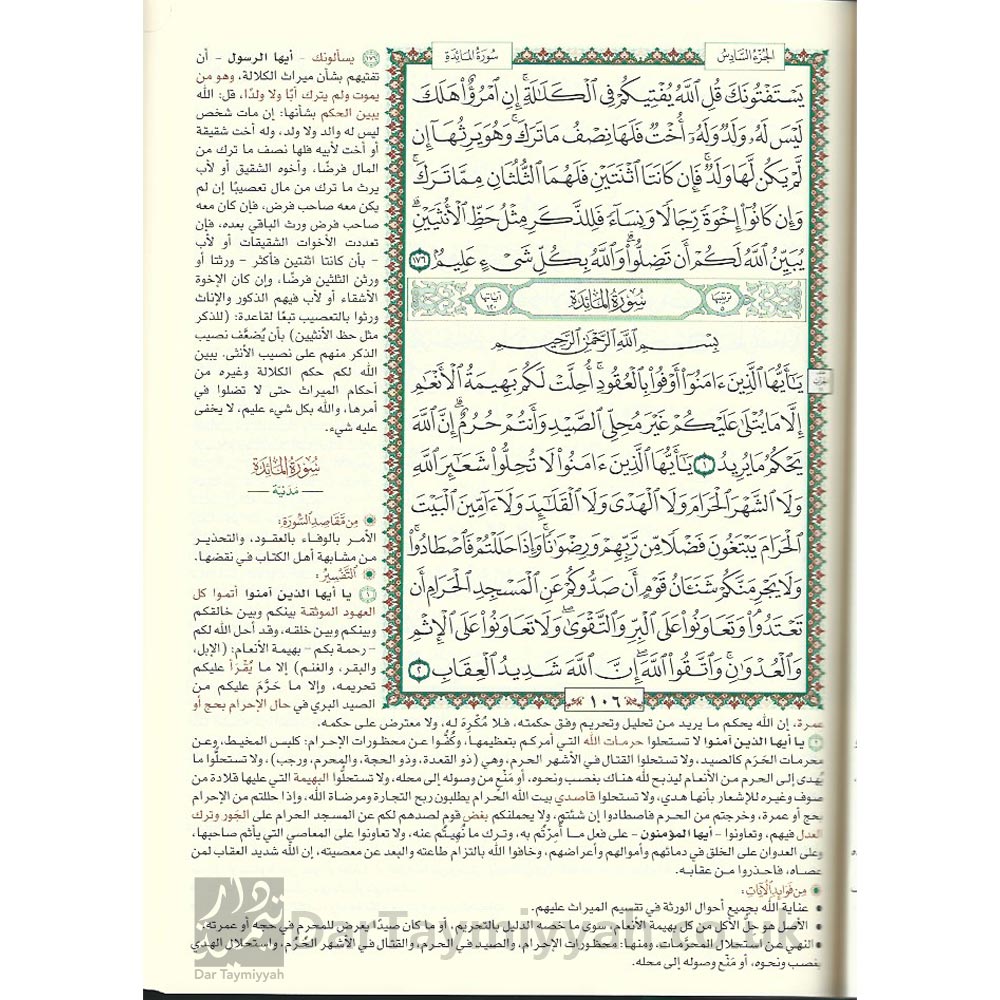 الجزء السادس
سورة المائدة
يَسْتَفْتُونَكَ قُلِ ٱللَّهُ يُفْتِيكُمْ فِي ٱلْكَلَٰلَةِۚ إِنِ ٱمْرُؤٌاْ هَلَكَ
لَيْسَ لَهُۥ وَلَدٌ وَلَهُۥٓ أُخْتٌ فَلَهَا نِصْفُ مَا تَرَكَۚ وَهُوَ يَرِثُهَآ إِن
لَّمْ يَكُن لَّهَا وَلَدٌۚ فَإِن كَانَتَا ٱثْنَتَيْنِ فَلَهُمَا ٱلثُّلُثَانِ مِمَّا تَرَكَۚ
وَإِن كَانُوٓاْ إِخْوَةً رِّجَالًا وَنِسَآءً فَلِلذَّكَرِ مِثْلُ حَظِّ ٱلْأُنثَيَيْنِۗ
يُبَيِّنُ ٱللَّهُ لَكُمْ أَن تَضِلُّواْۗ وَٱللَّهُ بِكُلِّ شَيْءٍ عَلِيمٌ ١٧٦
ترتيبها ٥ سورة المائدة آياتها ١٢٠
بِسْمِ ٱللَّهِ ٱلرَّحْمَٰنِ ٱلرَّحِيمِ
يَٰٓأَيُّهَا ٱلَّذِينَ ءَامَنُوٓاْ أَوْفُواْ بِٱلْعُقُودِۚ أُحِلَّتْ لَكُم بَهِيمَةُ ٱلْأَنْعَٰمِ
إِلَّا مَا يُتْلَىٰ عَلَيْكُمْ غَيْرَ مُحِلِّي ٱلصَّيْدِ وَأَنتُمْ حُرُمٌۗ إِنَّ ٱللَّهَ
يَحْكُمُ مَا يُرِيدُ ١ يَٰٓأَيُّهَا ٱلَّذِينَ ءَامَنُواْ لَا تُحِلُّواْ شَعَٰٓئِرَ ٱللَّهِ
وَلَا ٱلشَّهْرَ ٱلْحَرَامَ وَلَا ٱلْهَدْيَ وَلَا ٱلْقَلَٰٓئِدَ وَلَآ ءَآمِّينَ ٱلْبَيْتَ
ٱلْحَرَامَ يَبْتَغُونَ فَضْلًا مِّن رَّبِّهِمْ وَرِضْوَٰنًاۚ وَإِذَا حَلَلْتُمْ فَٱصْطَادُواْۚ
وَلَا يَجْرِمَنَّكُمْ شَنَـَٔانُ قَوْمٍ أَن صَدُّوكُمْ عَنِ ٱلْمَسْجِدِ ٱلْحَرَامِ أَن
تَعْتَدُواْۘ وَتَعَاوَنُواْ عَلَى ٱلْبِرِّ وَٱلتَّقْوَىٰۖ وَلَا تَعَاوَنُواْ عَلَى ٱلْإِثْمِ
وَٱلْعُدْوَٰنِۚ وَٱتَّقُواْ ٱللَّهَۖ إِنَّ ٱللَّهَ شَدِيدُ ٱلْعِقَابِ ٢
١٠٦
١٧٦ يسألونك - أيها الرسول - أن
تفتيهم بشأن ميراث الكلالة، وهو من
يموت ولم يترك أبًا ولا ولدًا، قل: الله
يبين الحكم بشأنها: إن مات شخص
ليس له والد ولا ولد، وله أخت شقيقة
أو أخت لأبيه فلها نصف ما ترك من
المال فرضًا، وأخوه الشقيق أو لأب
يرث ما ترك من مال تعصيبًا إن لم
يكن معه صاحب فرض، فإن كان معه
صاحب فرض ورث الباقي بعده، فإن
تعددت الأخوات الشقيقات أو لأب
- بأن كانتا اثنتين فأكثر - ورثتا أو
ورثن الثلثين فرضًا، وإن كان الإخوة
الأشقاء أو لأب فيهم الذكور والإناث
ورثوا بالتعصيب تبعًا لقاعدة: (للذكر
مثل حظ الأنثيين) بأن يُضعَّف نصيب
الذكر منهم على نصيب الأنثى. يبين
الله لكم حكم الكلالة وغيره من
أحكام الميراث حتى لا تضلوا في
أمرها، والله بكل شيء عليم، لا يخفى
عليه شيء.
سورة المائدة
مدنية
من مقاصد السورة:
الأمر بالوفاء بالعقود، والتحذير
من مشابهة أهل الكتاب في نقضها.
التفسير:
١ يا أيها الذين آمنوا أتموا كل
العهود الموثقة بينكم وبين خالقكم
وبينكم وبين خلقه، وقد أحل الله لكم
- رحمة بكم - بهيمة الأنعام: (الإبل،
والبقر، والغنم) إلا ما يُقْرَأ عليكم
تحريمه، وإلا ما حَرَّمَ عليكم من
الصيد البري في حال الإحرام بحج أو
عمرة، إن الله يحكم ما يريد من تحليل وتحريم وفق حكمته، فلا مُكْرِهَ له، ولا معترض على حكمه.
٢ يا أيها الذين آمنوا لا تستحلوا حرمات الله التي أمركم بتعظيمها، وكُفُّوا عن محظورات الإحرام: كلبس المخيط، وعن
محرمات الحَرَم كالصيد، ولا تستحلوا القتال في الأشهر الحرم، وهي (ذو القعدة، وذو الحجة، والمحرم، ورجب)، ولا تستحلوا ما
يُهدى إلى الحرم من الأنعام ليذبح لله هناك بغصب ونحوه، أو مَنْعٍ من وصوله إلى محله، ولا تستحلُّوا البهيمة التي عليها قلادة من
صوف وغيره للإشعار بأنها هدي، ولا تستحلوا قاصدي بيت الله الحرام يطلبون ربح التجارة ومرضاة الله، وإذا حللتم من الإحرام
بحج أو عمرة، وخرجتم من الحرم فاصطادوا إن شئتم، ولا يحملنكم بغض قوم لصدهم لكم عن المسجد الحرام على الجَور وترك
العدل فيهم، وتعاونوا - أيها المؤمنون - على فعل ما أُمِرْتُم به، وترك ما نُهِيتُم عنه، ولا تعاونوا على المعاصي التي يأثم صاحبها،
وعلى العدوان على الخلق في دمائهم وأموالهم وأعراضهم، وخافوا الله بالتزام طاعته والبعد عن معصيته، إن الله شديد العقاب لمن
عصاه، فاحذروا من عقابه.
من فوائد الآيات:
عناية الله بجميع أحوال الورثة في تقسيم الميراث عليهم.
الأصل هو حِلُّ الأكل من كل بهيمة الأنعام، سوى ما خصه الدليل بالتحريم، أو ما كان صيدًا يعرض للمحرم في حجه أو عمرته.
النهي عن استحلال المحرَّمات، ومنها: محظورات الإحرام، والصيد في الحرم، والقتال في الأشهر الحُرُم، واستحلال الهدي
بغصب ونحوه، أو مَنْع وصوله إلى محله.
DarTaymiyyah.co.uk
Dar Taymiyyah